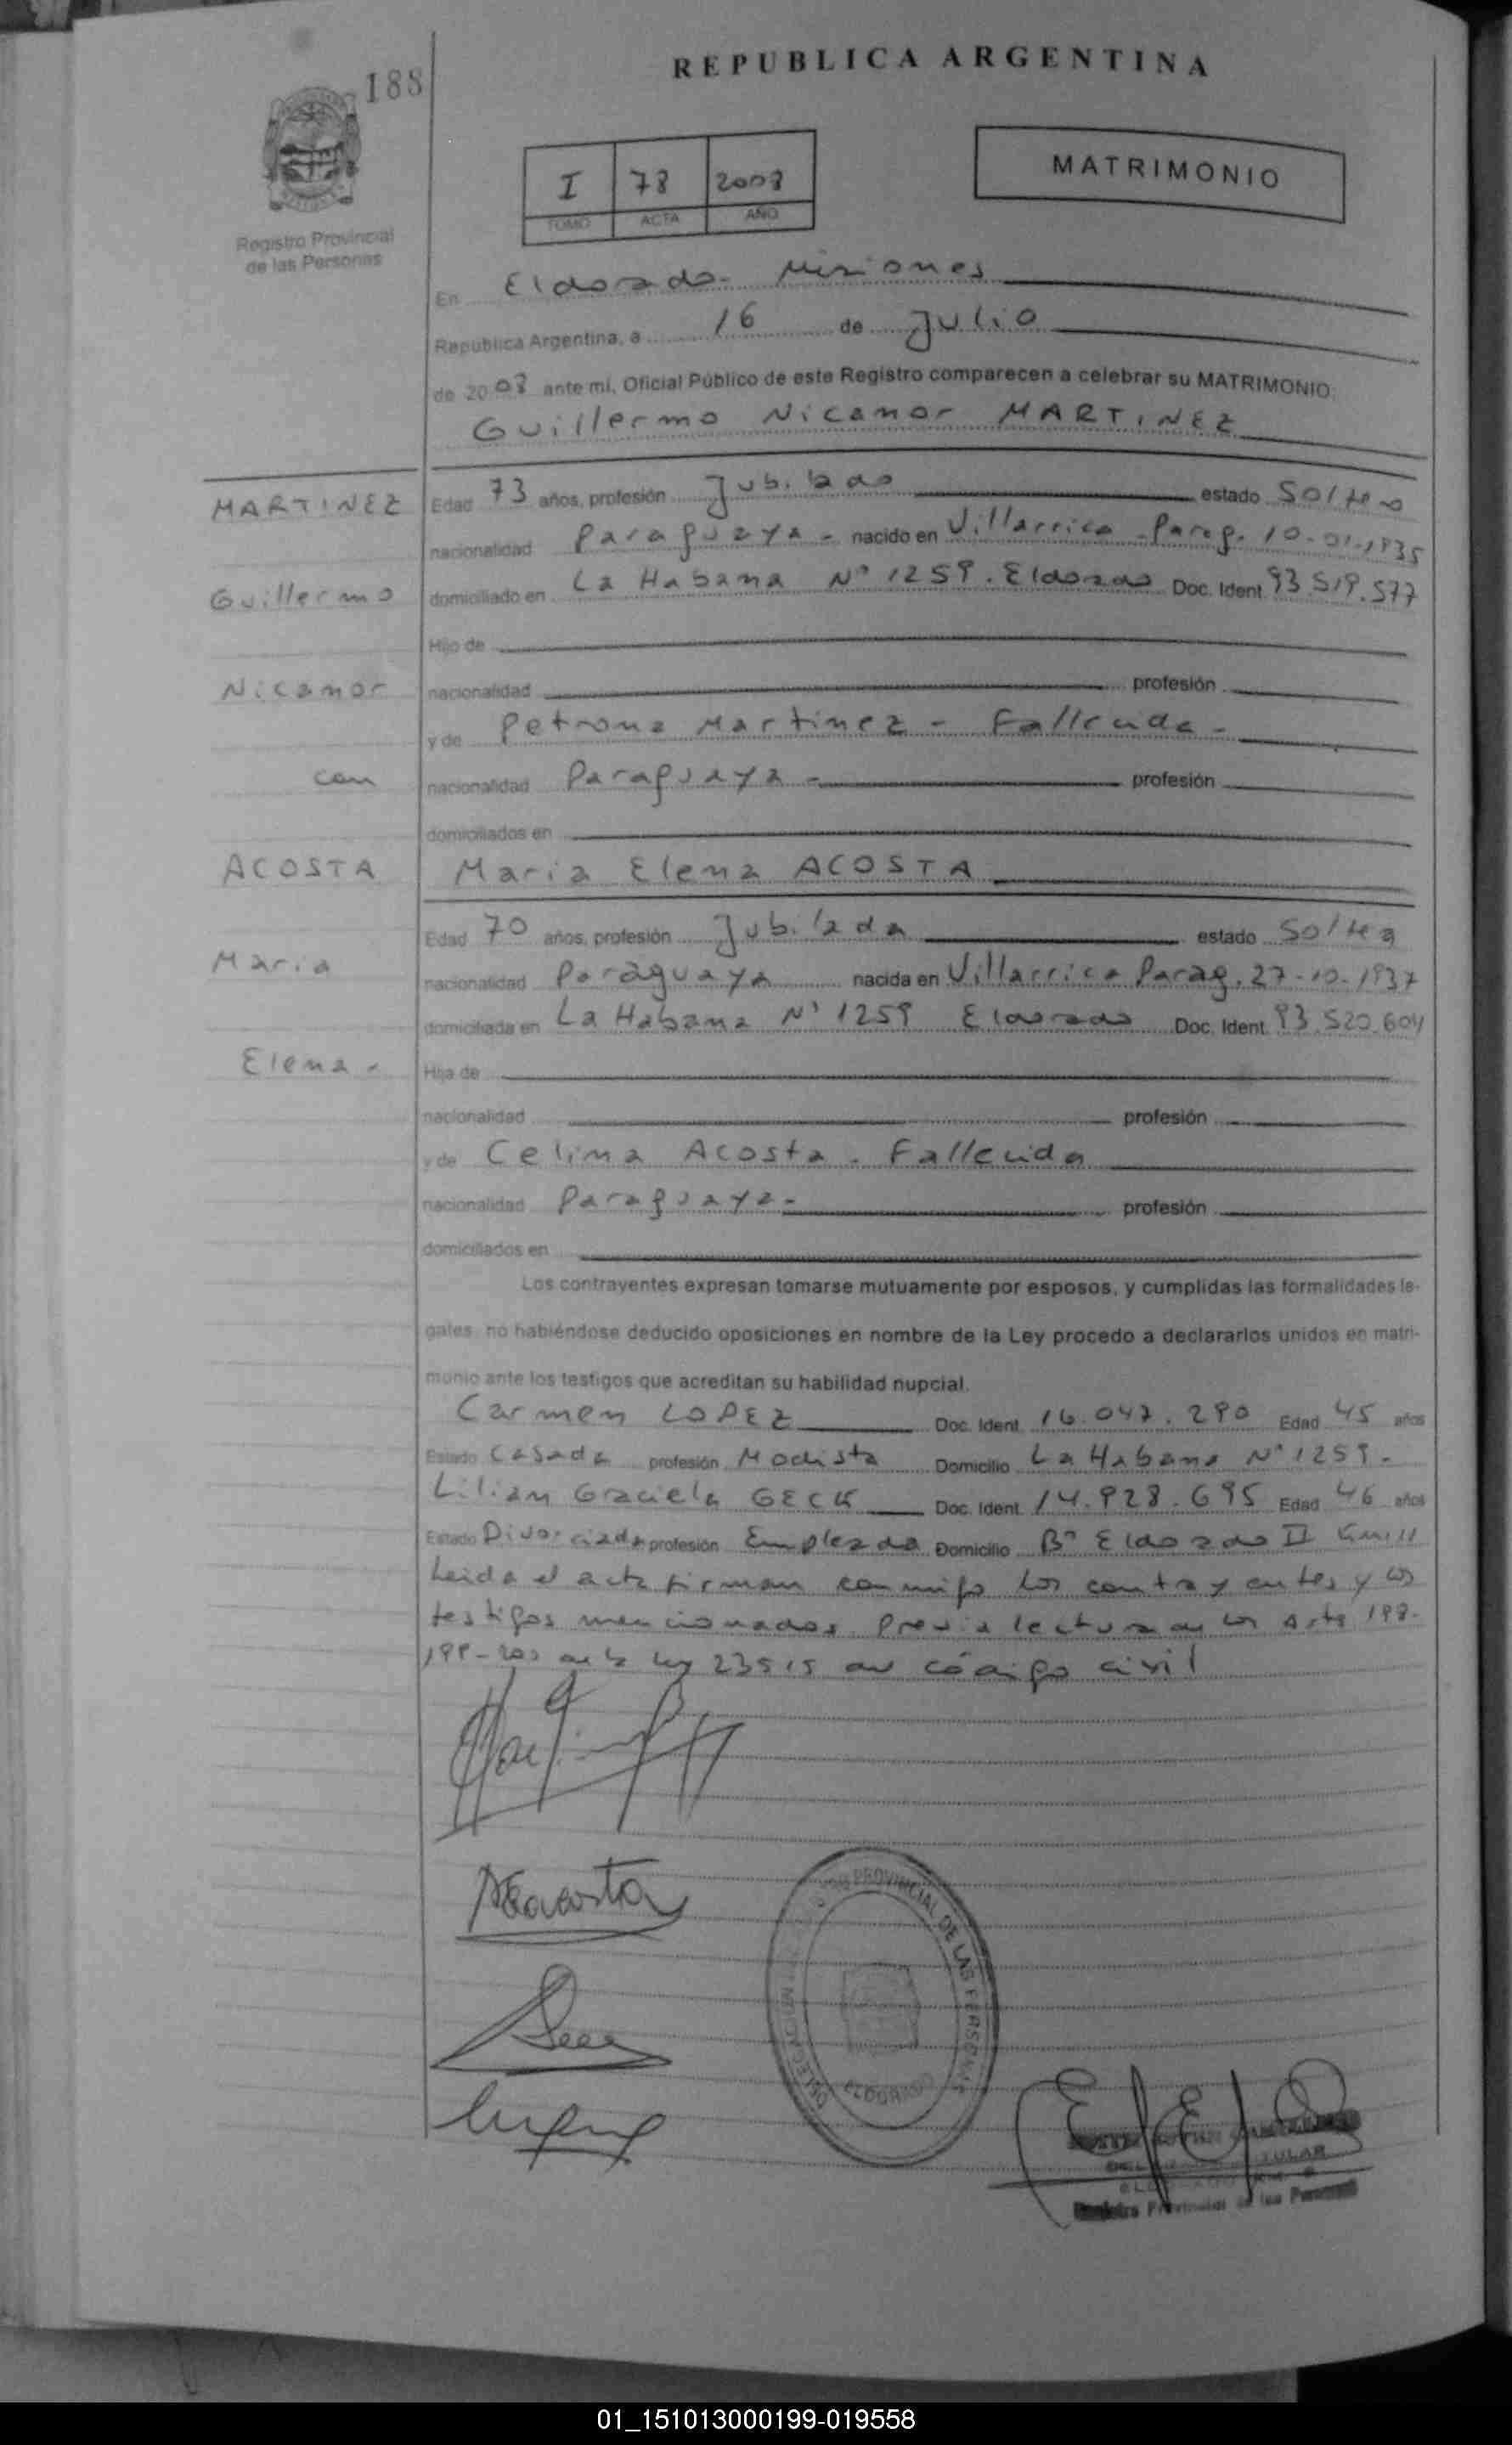 188
REPUBLICA ARGENTINA
I 78 2008
TOMO ACTA AÑO
MATRIMONIO
Registro Provincial
de las Personas
En Eldorado - Misiones
Republica Argentina, a 16 de Julio
de 2008 ante mi, Oficial Público de este Registro comparecen a celebrar su MATRIMONIO:
Guillermo Nicanor MARTINEZ
MARTINEZ
Edad 73 años, profesión Jubilado estado Soltero
nacionalidad Paraguaya - nacido en Villarrica - Parag. 10-01-1935
Guillermo
domiciliado en La Habana N° 1259. Eldorado Doc. Ident. 93.519.577
Hijo de
Nicanor
nacionalidad profesión
y de Petrona Martinez - Fallecida -
con
nacionalidad Paraguaya - profesión
domiciliados en
ACOSTA
Maria Elena ACOSTA
Edad 70 años, profesión Jubilada estado Soltera
Maria
nacionalidad Paraguaya nacida en Villarrica Parag. 27-10-1937
domiciliada en La Habana N° 1259 Eldorado Doc. Ident. 93.520.604
Elena -
Hija de
nacionalidad profesión
y de Celima Acosta - Fallecida
nacionalidad Paraguaya - profesión
domiciliados en
Los contrayentes expresan tomarse mutuamente por esposos, y cumplidas las formalidades le-
gales no habiéndose deducido oposiciones en nombre de la Ley procedo a declararlos unidos en matri-
monio ante los testigos que acreditan su habilidad nupcial.
Carmen LOPEZ Doc. Ident. 16.047.290 Edad 45 años
Estado Casada profesión Modista Domicilio La Habana N° 1259.
Lilian Graciela GECK Doc. Ident. 14.928.695 Edad 46 años
Estado Divorciada profesión Empleada Domicilio B° Eldorado II Km 11
Leida el acta firman conmigo los contrayentes y los
testigos mencionados previa lectura de los Arts 198-
199-200 de la Ley 23515 del código civil
MEacosta
PROVINCIAL DE LAS PERSONAS
ELDORADO
TITULAR
Registro Provincial de las Personas
01_151013000199-019558